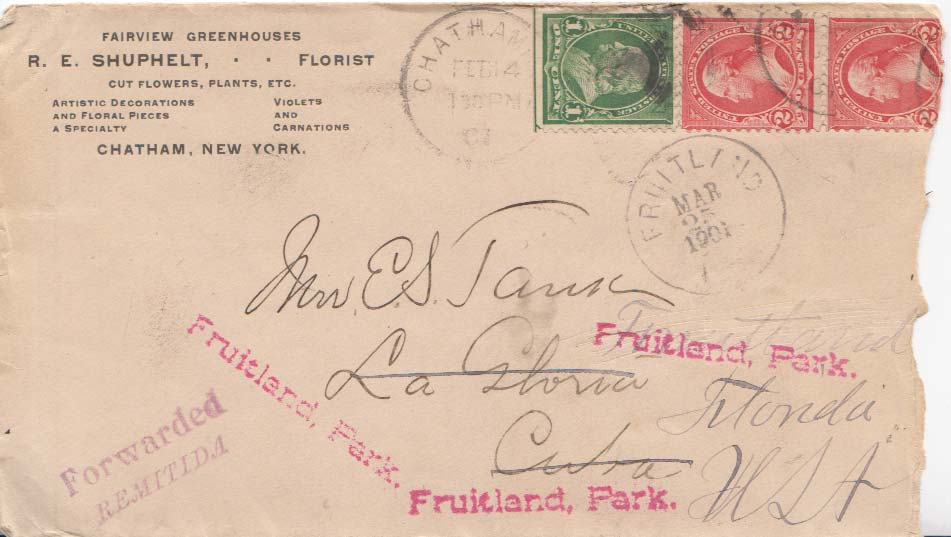 FAIRVIEW GREENHOUSES
R. E. SHUPHELT, · · FLORIST
CUT FLOWERS, PLANTS, ETC.
ARTISTIC DECORATIONS
AND FLORAL PIECES
A SPECIALTY
VIOLETS
AND
CARNATIONS
CHATHAM, NEW YORK.
CHATHAM
FEB 14
PM
1
1
U.S. POSTAGE
2
2
U.S. POSTAGE
2
FRUITLAND
MAR
25
1901
1
Mrs E.S. Tank
La Gloria
Cuba
Fruitland
Florida
USA
Fruitland, Park.
Fruitland, Park.
Fruitland, Park.
Forwarded
REMITIDA